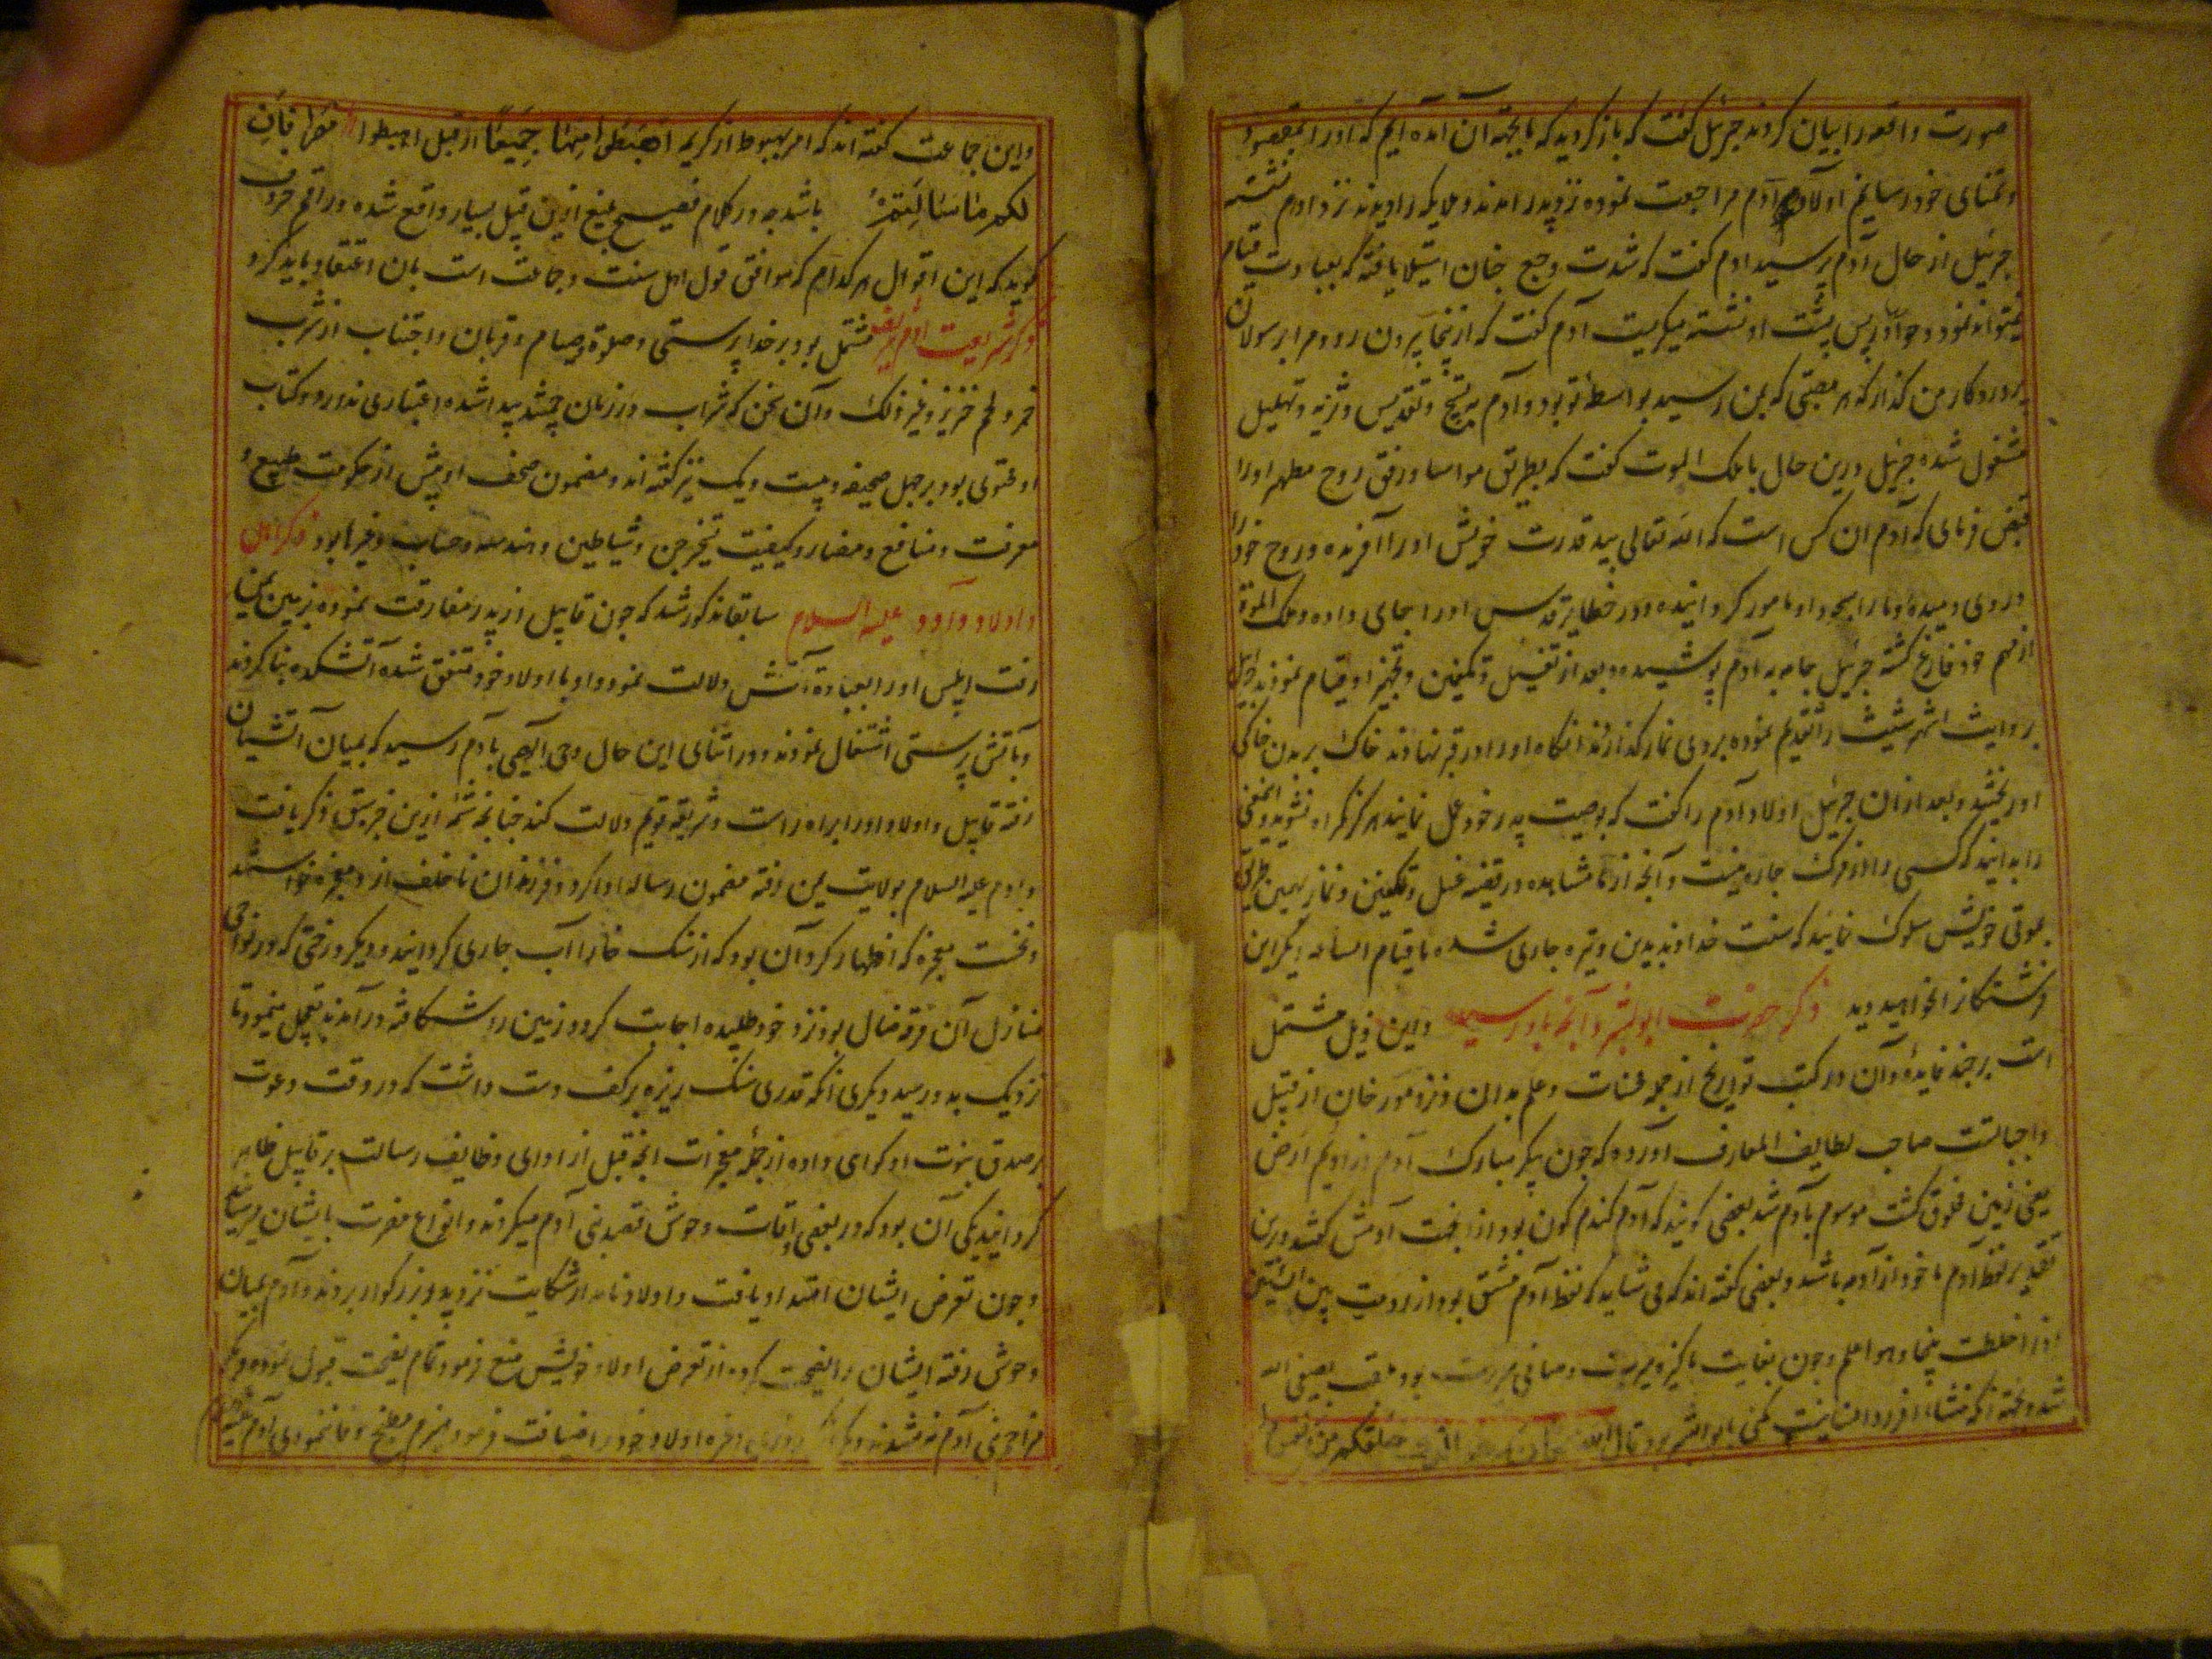 صورت واقعه را بیان کردند جبرئیل گفت که باز کردید که ما بجهته آن آمده ایم که او را بمقصود
و تمنای خود رسانیم اولاد آدم مراجعت نموده نزد پدر امدند و ملایکه را دیدند نزد ادم نشسته
جبرئیل از حال آدم پرسید ادم گفت که شدت وجع چنان استیلا یافته که بعبادت قیام
نمیتوانم نمود و حوا در پس پشت او نشسته میگریست آدم گفت که از اینجا بیرون رو و مرا برسولان
پروردگار من گذار که هر مصیبتی که بمن رسید بواسطه تو بود و آدم به تسبیح و تقدیس و تنزیه و تهلیل
مشغول شده جبرئیل درین حال با ملک الموت گفت که بطریق مواسا و رفق روح مطهر او را
قبض فرمای که آدم ان کس است که الله تعالی بید قدرت خویش او را آفریده و روح خود را
در وی دمیده و ما را بسجده او مامور کردانیده و در حظایر قدس او را جای داده و ملک الموت
از مهم خود فارغ کشته جبرئیل جامه به آدم پوشیده و بعد از تغسیل و تکفین و تجهیز او قیام نمودند جبرئیل
بروایت اشهر شیث را تقدیم نموده بر وی نماز گذاردند انکاه او را در قبر نهادند خاک بر بدن خاکی
او ریختند و بعد از ان جبرئیل اولاد آدم را گفت که بوصیت پدر خود عمل نمایند هرکز گمراه نشوید و یقین
را بدانید که کسی را از مرک چاره نیست و آنچه از ما مشاهده در قضیه غسل و تکفین و نماز بهمین طریق
بموتی خویش سلوک نمایند که سنت خداوند بدین وتیره جاری شده تا قیام الساعه دیگر این
فرشتگان را نخواهید دید ذکر حضرت ابوالبشر و آنچه بدو رسید و این ذیل مشتمل
است بر چند فایده و آن در کتب تواریخ از جمله محسنات و علم بدان نزد مورخان از قبیل
واجبا تست صاحب لطایف المعارف آورده که چون پیکر مبارک آدم از ادیم ارض
یعنی زمین مخلوق کشت موسوم بآدم شد بعضی کویند که آدم کندم کون بود از انجهت آدمش گفتند درین
تقدیر لفظ آدم ماخوذ از ادمه باشد و بعضی گفته اند که می شاید که لفظ آدم مشتق بود از ادمت بین الشیئین
اذا اخلطت بینهما و هو اعلم و چون بغایت پاکیزه سیرت و صافی سریرت بود ملقب بصفی الله
شد و بجهته آنکه منشاء افراد انسانیست کنی بابو البشر بود قال الله هو الذی خلقکم من نفس
و این جماعت گفته اند که امر بهبوط از کریمه اهبطوا منها جمیعا از قبل اهبطوا مصرا فان
لکم ما سالتم باشد چه در کلام فصیح بلیغ ازین قبیل بسیار واقع شده و راقم حروف
گوید که این اقوال هر کدام که موافق قول اهل سنت و جماعت است بان اعتقاد باید کرد
ذکر شریعت آدم مشتمل بود بر خدا پرستی و صلوة و صیام و قربان و اجتناب از شرب
خمر و لحم خنزیر و غیر ذلک و آن سخن که شراب در زمان جمشید پیدا شده اعتباری ندارد و کتاب
او محتوی بود بر چهل صحیفه و بیست و یک نیز گفته اند و مضمون صحف او بیش از حکومت طبیع و
معرفت و منافع و مضار و کیفیت تسخیر جن و شیاطین و هندسه و حساب و غیرها بود ذکر
و اولاد و آدم علیه السلام سابقا مذکور شد که چون قابیل از پدر مفارقت نموده بزمین یمن
رفت ابلیس او را بعبادة آتش دلالت نمود و او با اولاد خود متفق شده آتشکده بنا کردند
و بآتش پرستی اشتغال نمودند و در اثنای این حال وحی الهی بآدم رسید که بمیان آتشیان
رفته قابیل و اولاد او را براه راست و شریعه قویم دلالت کند چنانچه شمه ازین فریق ذکر یافت
و ادم علیه السلام بولایت یمن رفته مضمون رساله ادا کرد و فرزندان ناخلف از و معجزه خواستند
و نخست معجزه که اظهار کرد آن بود که از سنک خارا آب جاری کردانید و دیگر درختی که در نواحی
منازل آن فرقه ضال بود نزد خود طلبیده اجابت کرد و زمین را شکافته در آمد و تعجیل مینمود تا
نزدیک بدو رسید و دیگری آنکه قدری سنک ریزه بر کف دست داشت که در وقت دعوت
بر صدق نبوت او کواهی داده از جمله معجزات انچه قبل از ادای وظایف رسالت بر قابیل ظاهر
کردانید یکی آن بود که در بعضی اوقات وحوش قصد بنی آدم میکردند و انواع مضرت بایشان میرسانید
و چون تعرض ایشان امتداد یافت و اولاد نامدار شکایت نزد پدر بزرگوار بردند و آدم بمیان
وحوش رفته ایشان را نصیحت کرده از تعرض اولاد خویش منع فرمود تمام نصیحت قبول نموده دیگر
مزاحم بنی آدم نمیشدند و دیگر اولاد خود را ضیافت فرمود